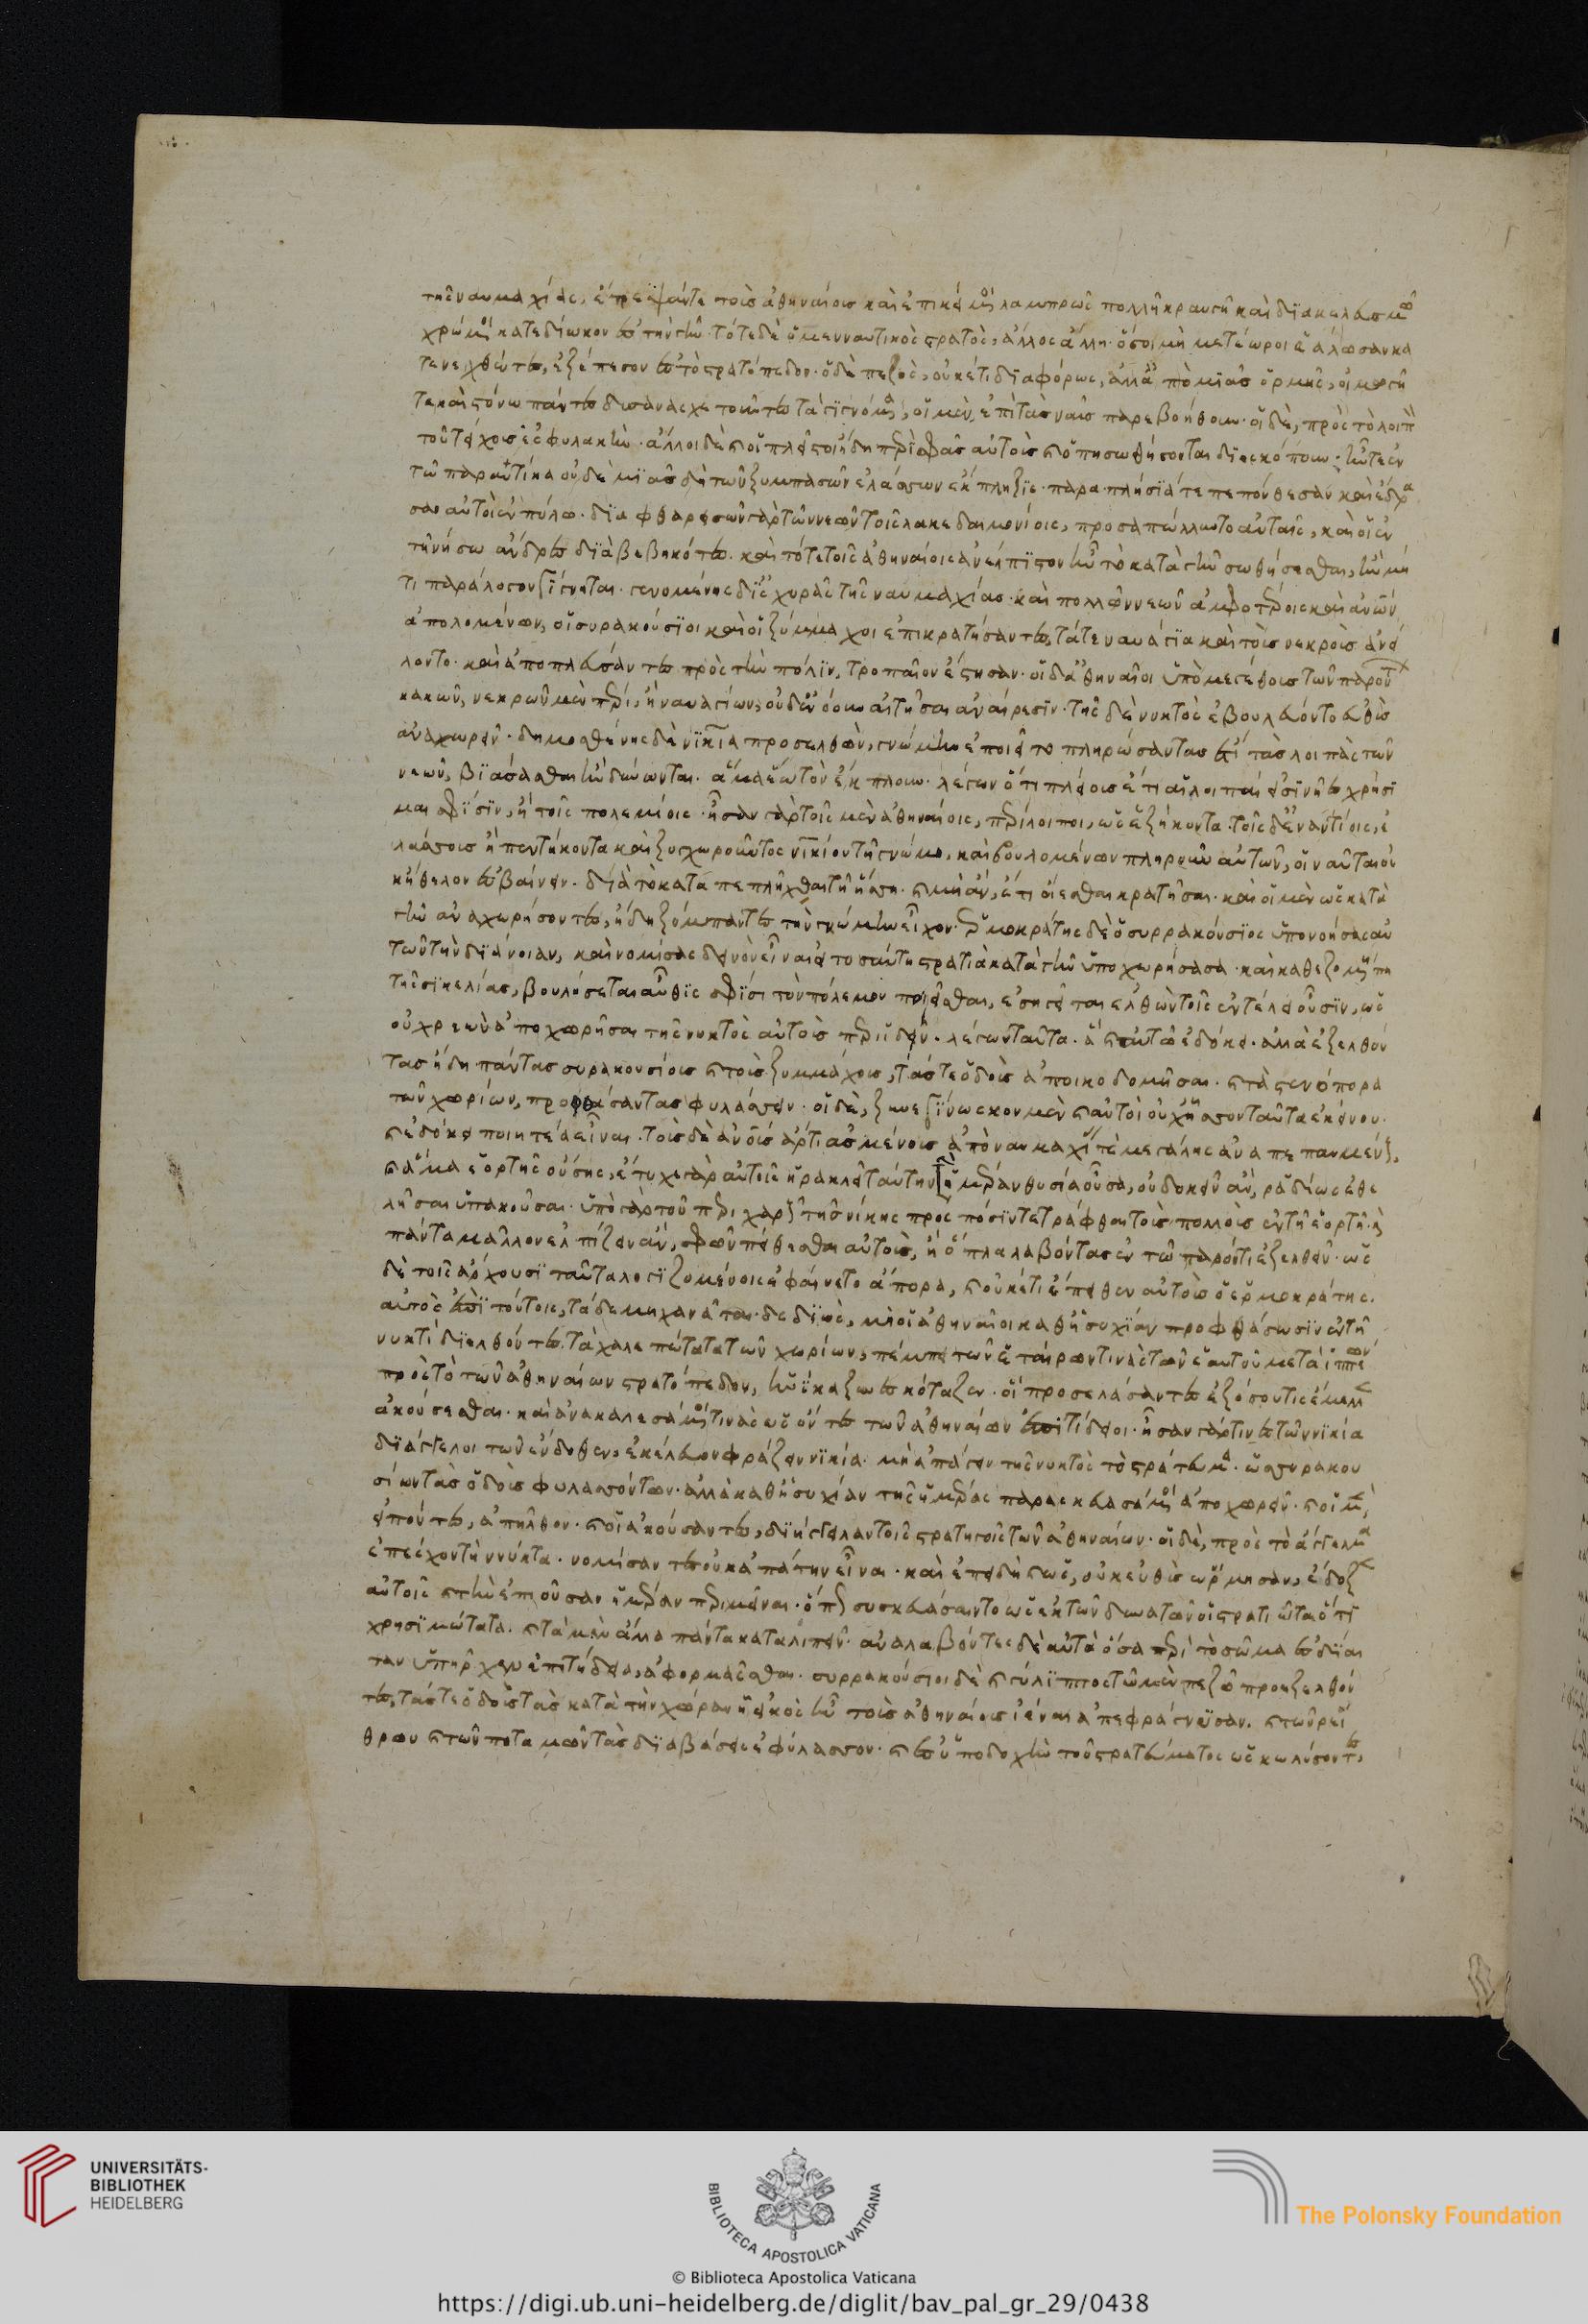 τῆς ναυμαχίας, ἔτρεψάν τε τοὺς ἀθηναίους καὶ ἐπικείμενοι λαμπρῶς πολλῆ κραυγῆ καὶ διακελευσμῶ
χρώμενοι κατεδίωκον ἐς τὴν γῆν· τότε δὲ ὁ μὲν ναυτικὸς στρατὸς, ἄλλος ἄλλη· ὅσοι μὴ μετέωροι ἑάλωσαν κα
τενεχθέντες, ἐξέπεσον ἐς τὸ στρατόπεδον· ὁ δὲ πεζὸς, οὐκέτι διαφόρως, ἀλλ' ἀπὸ μιᾶς ὁρμῆς, οἰμωγῆ
τε καὶ στόνω πάντες δυσανασχετοῦντες τὰ γιγνόμενα, οἱ μὲν, ἐπὶ τὰς ναῦς παρεβοήθουν· οἱ δὲ, πρὸς τὸ λοιπὸν
τοῦ τείχους ἐς φυλακήν· ἄλλοι δὲ καὶ οἱ πλεῖστοι ἤδη περὶ σφᾶς αὐτοὺς καὶ ὅπη σωθήσονται διεσκόπουν· ἦν τε ἐν
τῶ παραυτίκα οὐδεμιᾶς δὴ τῶν ξυμπασῶν ἐλάσσων ἔκπληξις· παραπλήσιά τε πεπόνθεσαν καὶ ἔδρα
σαν αὐτοὶ ἐν πύλω· διαφθαρεισῶν γὰρ τῶν νεῶν τοῖς λακεδαιμονίοις, προσαπώλλυντο αὐταῖς, καὶ οἱ ἐν
τῆ νήσω ἄνδρες διαβεβηκότες. καὶ τότε τοῖς ἀθηναίοις ἀνέλπιστον ἦν τὸ κατὰ γῆν σωθήσεσθαι, ἢν μή
τι παράλογον γίγνηται· γενομένης δ' ἰσχυρᾶς τῆς ναυμαχίας· καὶ πολλῶν νεῶν ἀμφοτέροις καὶ ἀνθρώπων
ἀπολομένων, οἱ συρακούσιοι καὶ οἱ ξύμμαχοι ἐπικρατήσαντες, τά τε ναυάγια καὶ τοὺς νεκροὺς ἀνεί
λοντο· καὶ ἀποπλεύσαντες πρὸς τὴν πόλιν, τροπαῖον ἔστησαν· οἱ δ' ἀθηναῖοι ὑπὸ μεγέθους τῶν παρόντων
κακῶν, νεκρῶν μὲν πέρι, ἢ ναυαγίων, οὐδὲ ἐπενόουν αἰτῆσαι ἀναίρεσιν· τῆς δὲ νυκτὸς ἐβουλεύοντο εὐθὺς
ἀναχωρεῖν· δημοσθένης δὲ νικία προσελθὼν, γνώμην ἐποιεῖτο πληρώσαντας ἔτι τὰς λοιπὰς τῶν
νεῶν, βιάσασθαι ἢν δύνωνται· ἅμα ἕω τὸν ἔκπλουν· λέγων ὅτι πλείους ἔτι αἱ λοιπαί εἰσι νῆες χρήσι
μαι σφίσιν, ἢ τοῖς πολεμίοις· ἦσαν γὰρ τοῖς μὲν ἀθηναίοις, περίλοιποι, ὡς ἑξήκοντα· τοῖς δ' ἐναντίοις, ἐ
λάσσους ἢ πεντήκοντα καὶ ξυγχωροῦντος νικίου τῆ γνώμη, καὶ βουλομένων πληροῦν αὐτῶν, οἱ ναῦται οὐ
κ ἤθελον ἐσβαίνειν· διὰ τὸ καταπεπλῆχθαι τῆ ἥσση· καὶ μὴ ἂν, ἔτι οἴεσθαι κρατῆσαι· καὶ οἱ μὲν ὡς κατὰ
γῆν ἀναχωρήσοντες, ἤδη ξύμπαντες τὴν γνώμην εἶχον· ἑρμοκράτης δὲ ὁ συρρακούσιος ὑπονοήσας αὐ
τῶν τὴν διάνοιαν, καὶ νομίσας δεινὸν εἶναι εἰ τοσαύτη στρατιὰ κατὰ γῆν ὑποχωρήσασα· καὶ καθεζομένη πη
τῆς σικελίας, βουλήσεται αὖθις σφίσι τὸν πόλεμον ποιεῖσθαι, ἐσηγεῖται ἐλθὼν τοῖς ἐν τέλει οὖσιν, ὡς
οὐ χρεὼν ἀποχωρῆσαι τῆς νυκτὸς αὐτοὺς περιιδεῖν· λέγων ταῦτα· ἃ καὶ αὐτῶ ἐδόκει· ἀλλὰ ἐξελθόν
τας ἤδη πάντας συρακουσίους καὶ τοὺς ξυμμάχους, τάς τε ὁδοὺς ἀποικοδομῆσαι· καὶ τὰ στενόπορα
τῶν χωρίων, προφθάσαντας φυλάσσειν· οἱ δὲ, ξυνεγίνωσκον μὲν καὶ αὐτοὶ οὐχ ἧσσον ταῦτα ἐκείνου·
καὶ ἐδόκει ποιητέα εἶναι· τοὺς δὲ ἀνθρώπους ἄρτι ἀσμένους ἀπὸ ναυμαχίας τε μεγάλης ἀναπεπαυμένους,
καὶ ἅμα ἑορτῆς οὔσης, ἔτυχε γὰρ αὐτοῖς ἡρακλεῖ ταύτην τὴν ἡμέραν θυσία οὖσα, οὐ δοκεῖν ἂν, ῥαδίως ἐθε
λῆσαι ὑπακοῦσαι· ὑπὸ γὰρ τοῦ περιχαροῦς τῆς νίκης πρὸς πόσιν τετράφθαι τοὺς πολλοὺς ἐν τῆ ἑορτῆ· καὶ
πάντα μᾶλλον ἐλπίζειν ἂν, σφῶν πείθεσθαι αὐτοὺς, ἢ ὅπλα λαβόντας ἐν τῶ παρόντι ἐξελθεῖν· ὡς
δὲ τοῖς ἄρχουσι ταῦτα λογιζομένοις ἐφαίνετο ἄπορα, καὶ οὐκέτι ἔπειθεν αὐτοὺς ὁ ἑρμοκράτης.
αὐτὸς ἐπὶ τούτοις, τάδε μηχανᾶται· δεδιὼς, μὴ οἱ ἀθηναῖοι καθ' ἡσυχίαν προφθάσωσιν ἐν τῆ
νυκτὶ διελθόντες. τὰ χαλεπώτατα τῶν χωρίων, πέμπει τῶν ἑταίρων τινὰς τῶν ἑαυτοῦ μετὰ ἱππέων
πρὸς τὸ τῶν ἀθηναίων στρατόπεδον, ἡνίκα ξυνεσκόταζεν· οἳ προσελάσαντες ἐξ ὅσου τις ἔμελλεν
ἀκούσεσθαι· καὶ ἀνακαλεσάμενοί τινας ὡς ὄντες τῶν ἀθηναίων ἐπιτήδειοι· ἦσαν γάρ τινες τῶ νικία
διάγγελοι τῶν ἔνδοθεν, ἐκέλευον φράζειν νικία· μὴ ἀπάγειν τῆς νυκτὸς τὸ στράτευμα· ὡς συρακου
σίων τὰς ὁδοὺς φυλασσόντων· ἀλλὰ καθ' ἡσυχίαν τῆς ἡμέρας παρασκευασάμενον ἀποχωρεῖν· καὶ οἱ μὲν,
εἰπόντες, ἀπῆλθον· καὶ οἱ ἀκούσαντες, διήγγειλαν τοῖς στρατηγοῖς τῶν ἀθηναίων· οἱ δὲ, πρὸς τὸ ἄγγελμα
ἐπέσχον τὴν νύκτα· νομίσαντες οὐκ ἀπάτην εἶναι· καὶ ἐπειδὴ καὶ ὣς, οὐκ εὐθὺς ὥρμησαν, ἔδοξεν
αὐτοῖς καὶ τὴν ἐπιοῦσαν ἡμέραν περιμεῖναι· ὅπως συσκευάσαιντο ὡς ἐκ τῶν δυνατῶν οἱ στρατιῶται ὅτι
χρησιμώτατα. καὶ τὰ μὲν ἄλλα πάντα καταλιπεῖν· ἀναλαβόντες δὲ αὐτὰ ὅσα περὶ τὸ σῶμα ἐς δίαι
ταν ὑπῆρχεν ἐπιτήδεια, ἀφορμᾶσθαι. συρρακούσιοι δὲ καὶ γύλιππος τῶ μὲν πεζῶ προεξελθόν
τες, τάς τε ὁδοὺς τὰς κατὰ τὴν χώραν ἧ εἰκὸς ἦν τοὺς ἀθηναίους ἰέναι ἀπεφράγνυσαν. καὶ τῶν ῥεί
θρων καὶ τῶν ποταμῶν τὰς διαβάσεις ἐφύλασσον· καὶ ἐς ὑποδοχὴν τοῦ στρατεύματος ὡς κωλύσοντες,
UNIVERSITÄTS-
BIBLIOTHEK
HEIDELBERG
BIBLIOTECA APOSTOLICA VATICANA
The Polonsky Foundation
© Biblioteca Apostolica Vaticana
https://digi.ub.uni-heidelberg.de/diglit/bav_pal_gr_29/0438